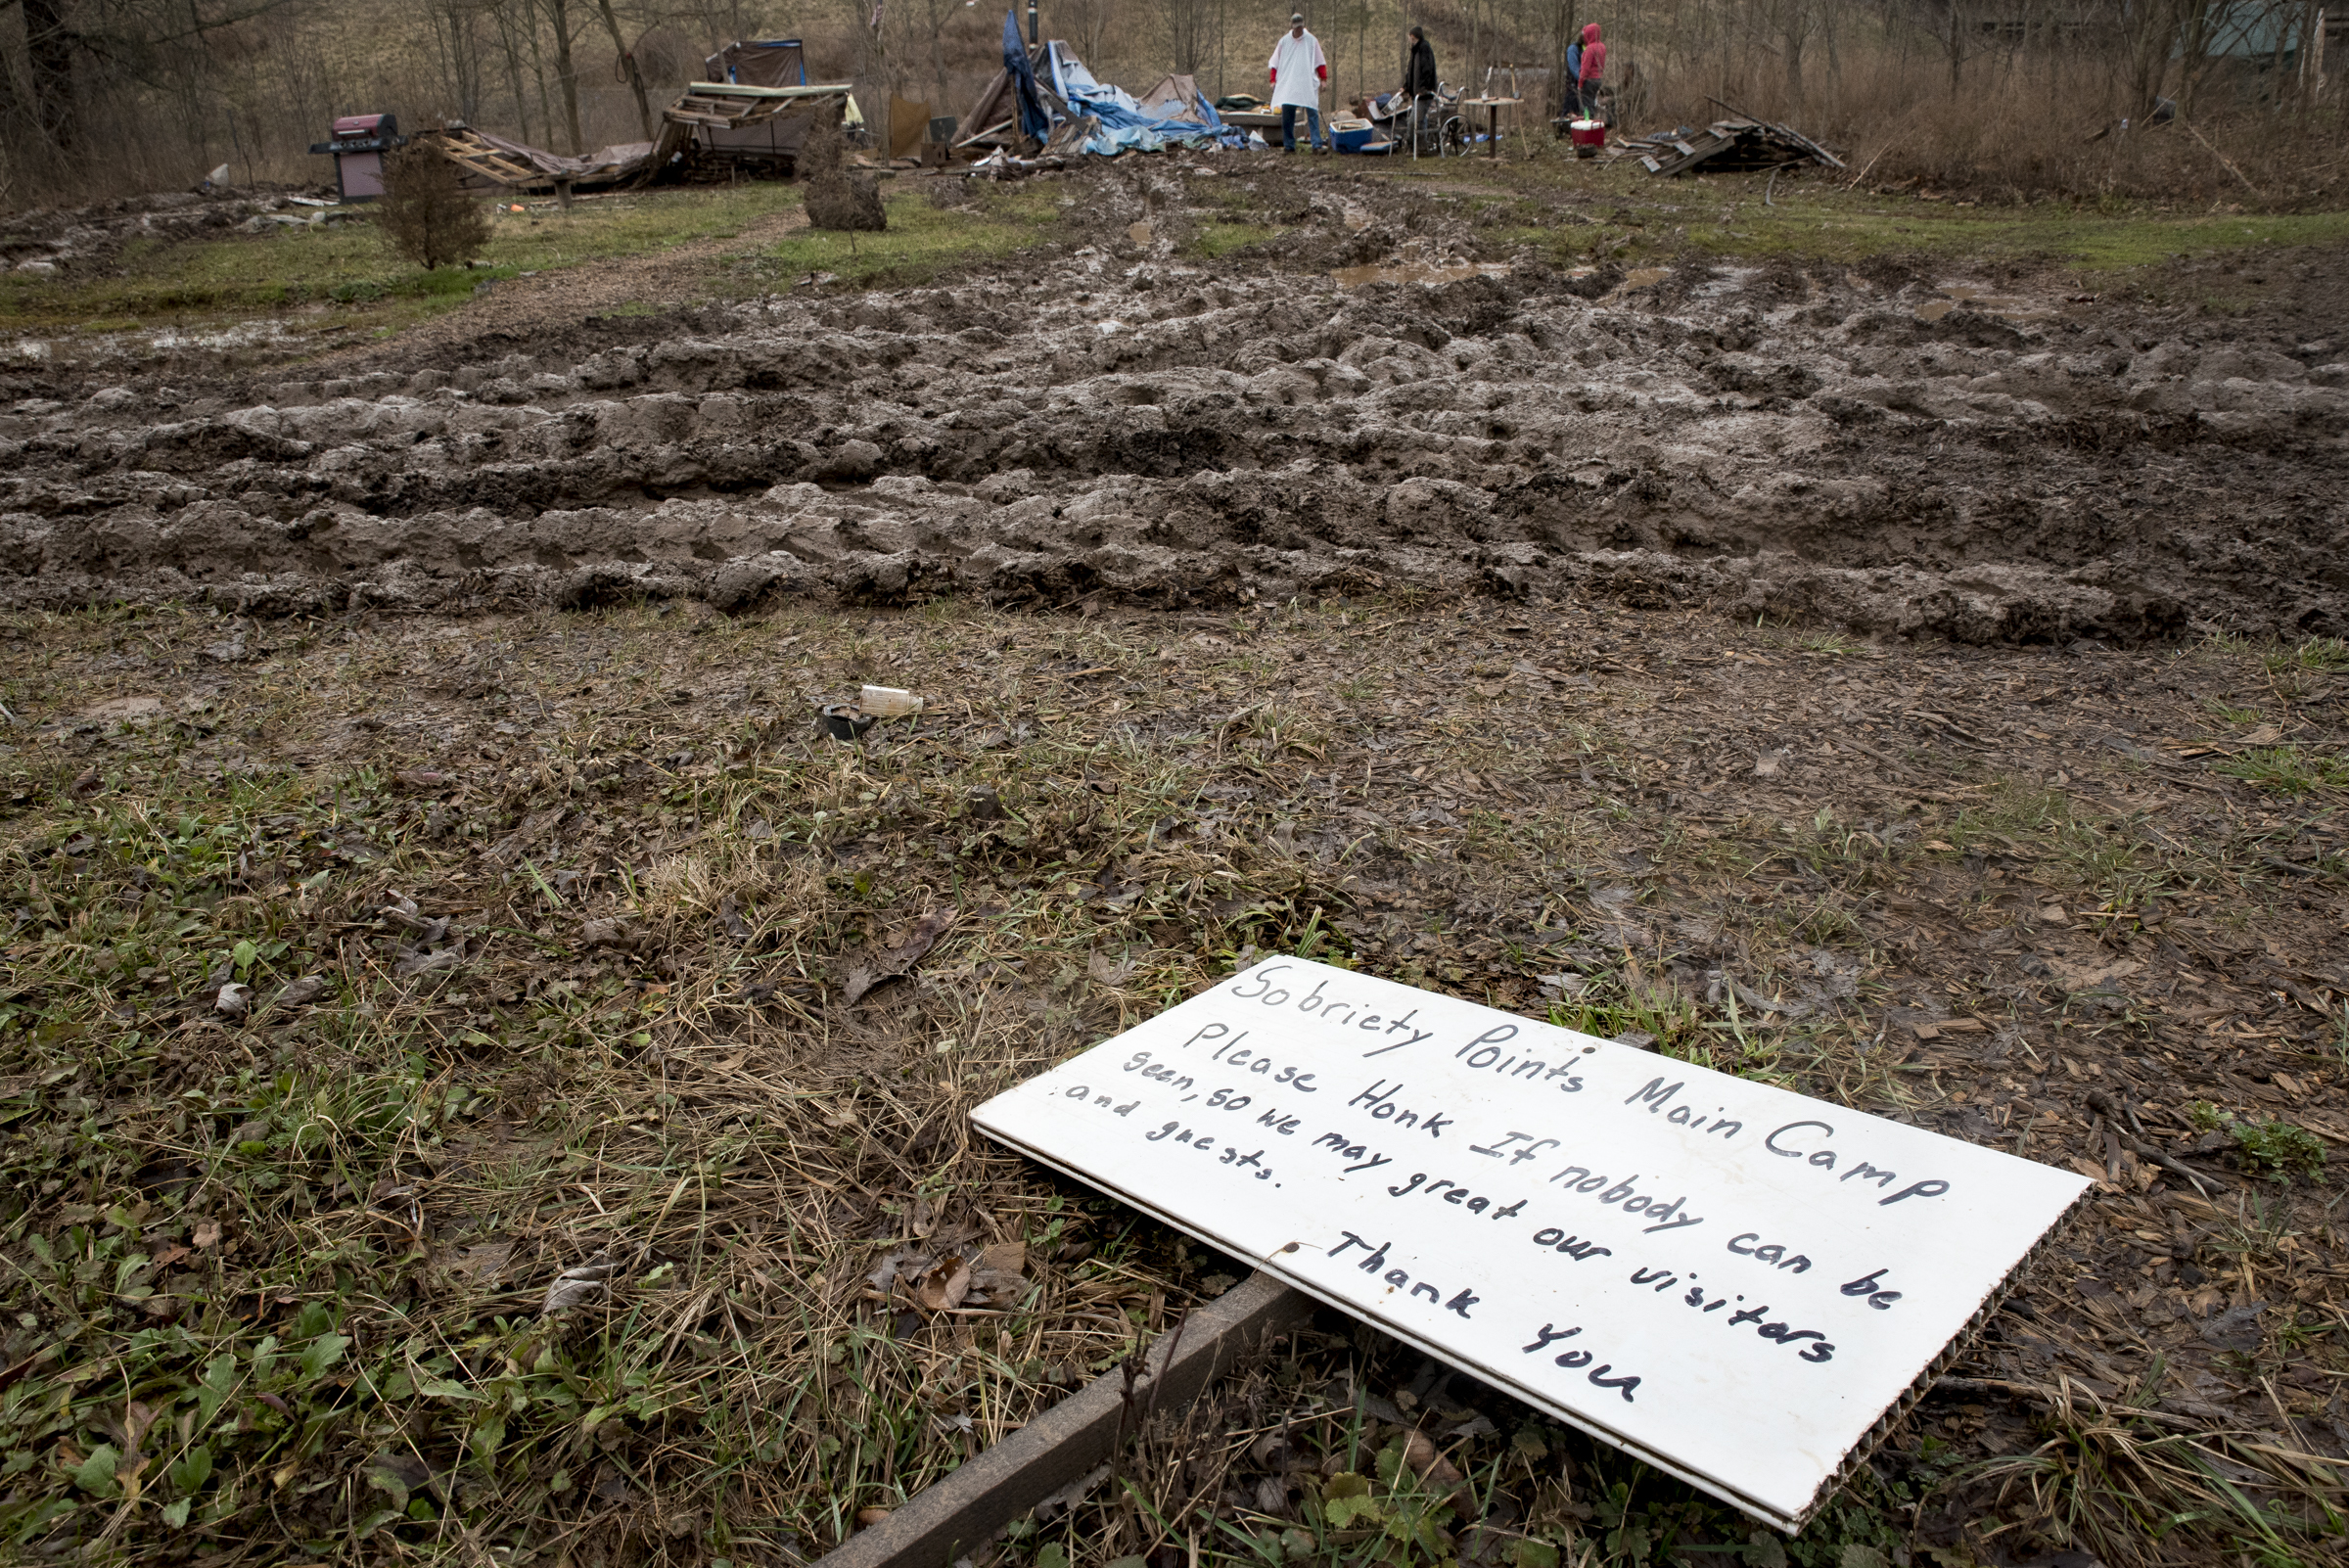 Sobriety Points Main Camp
Please Honk If nobody can be
seen, so we may great our visitors
and guests.
Thank You